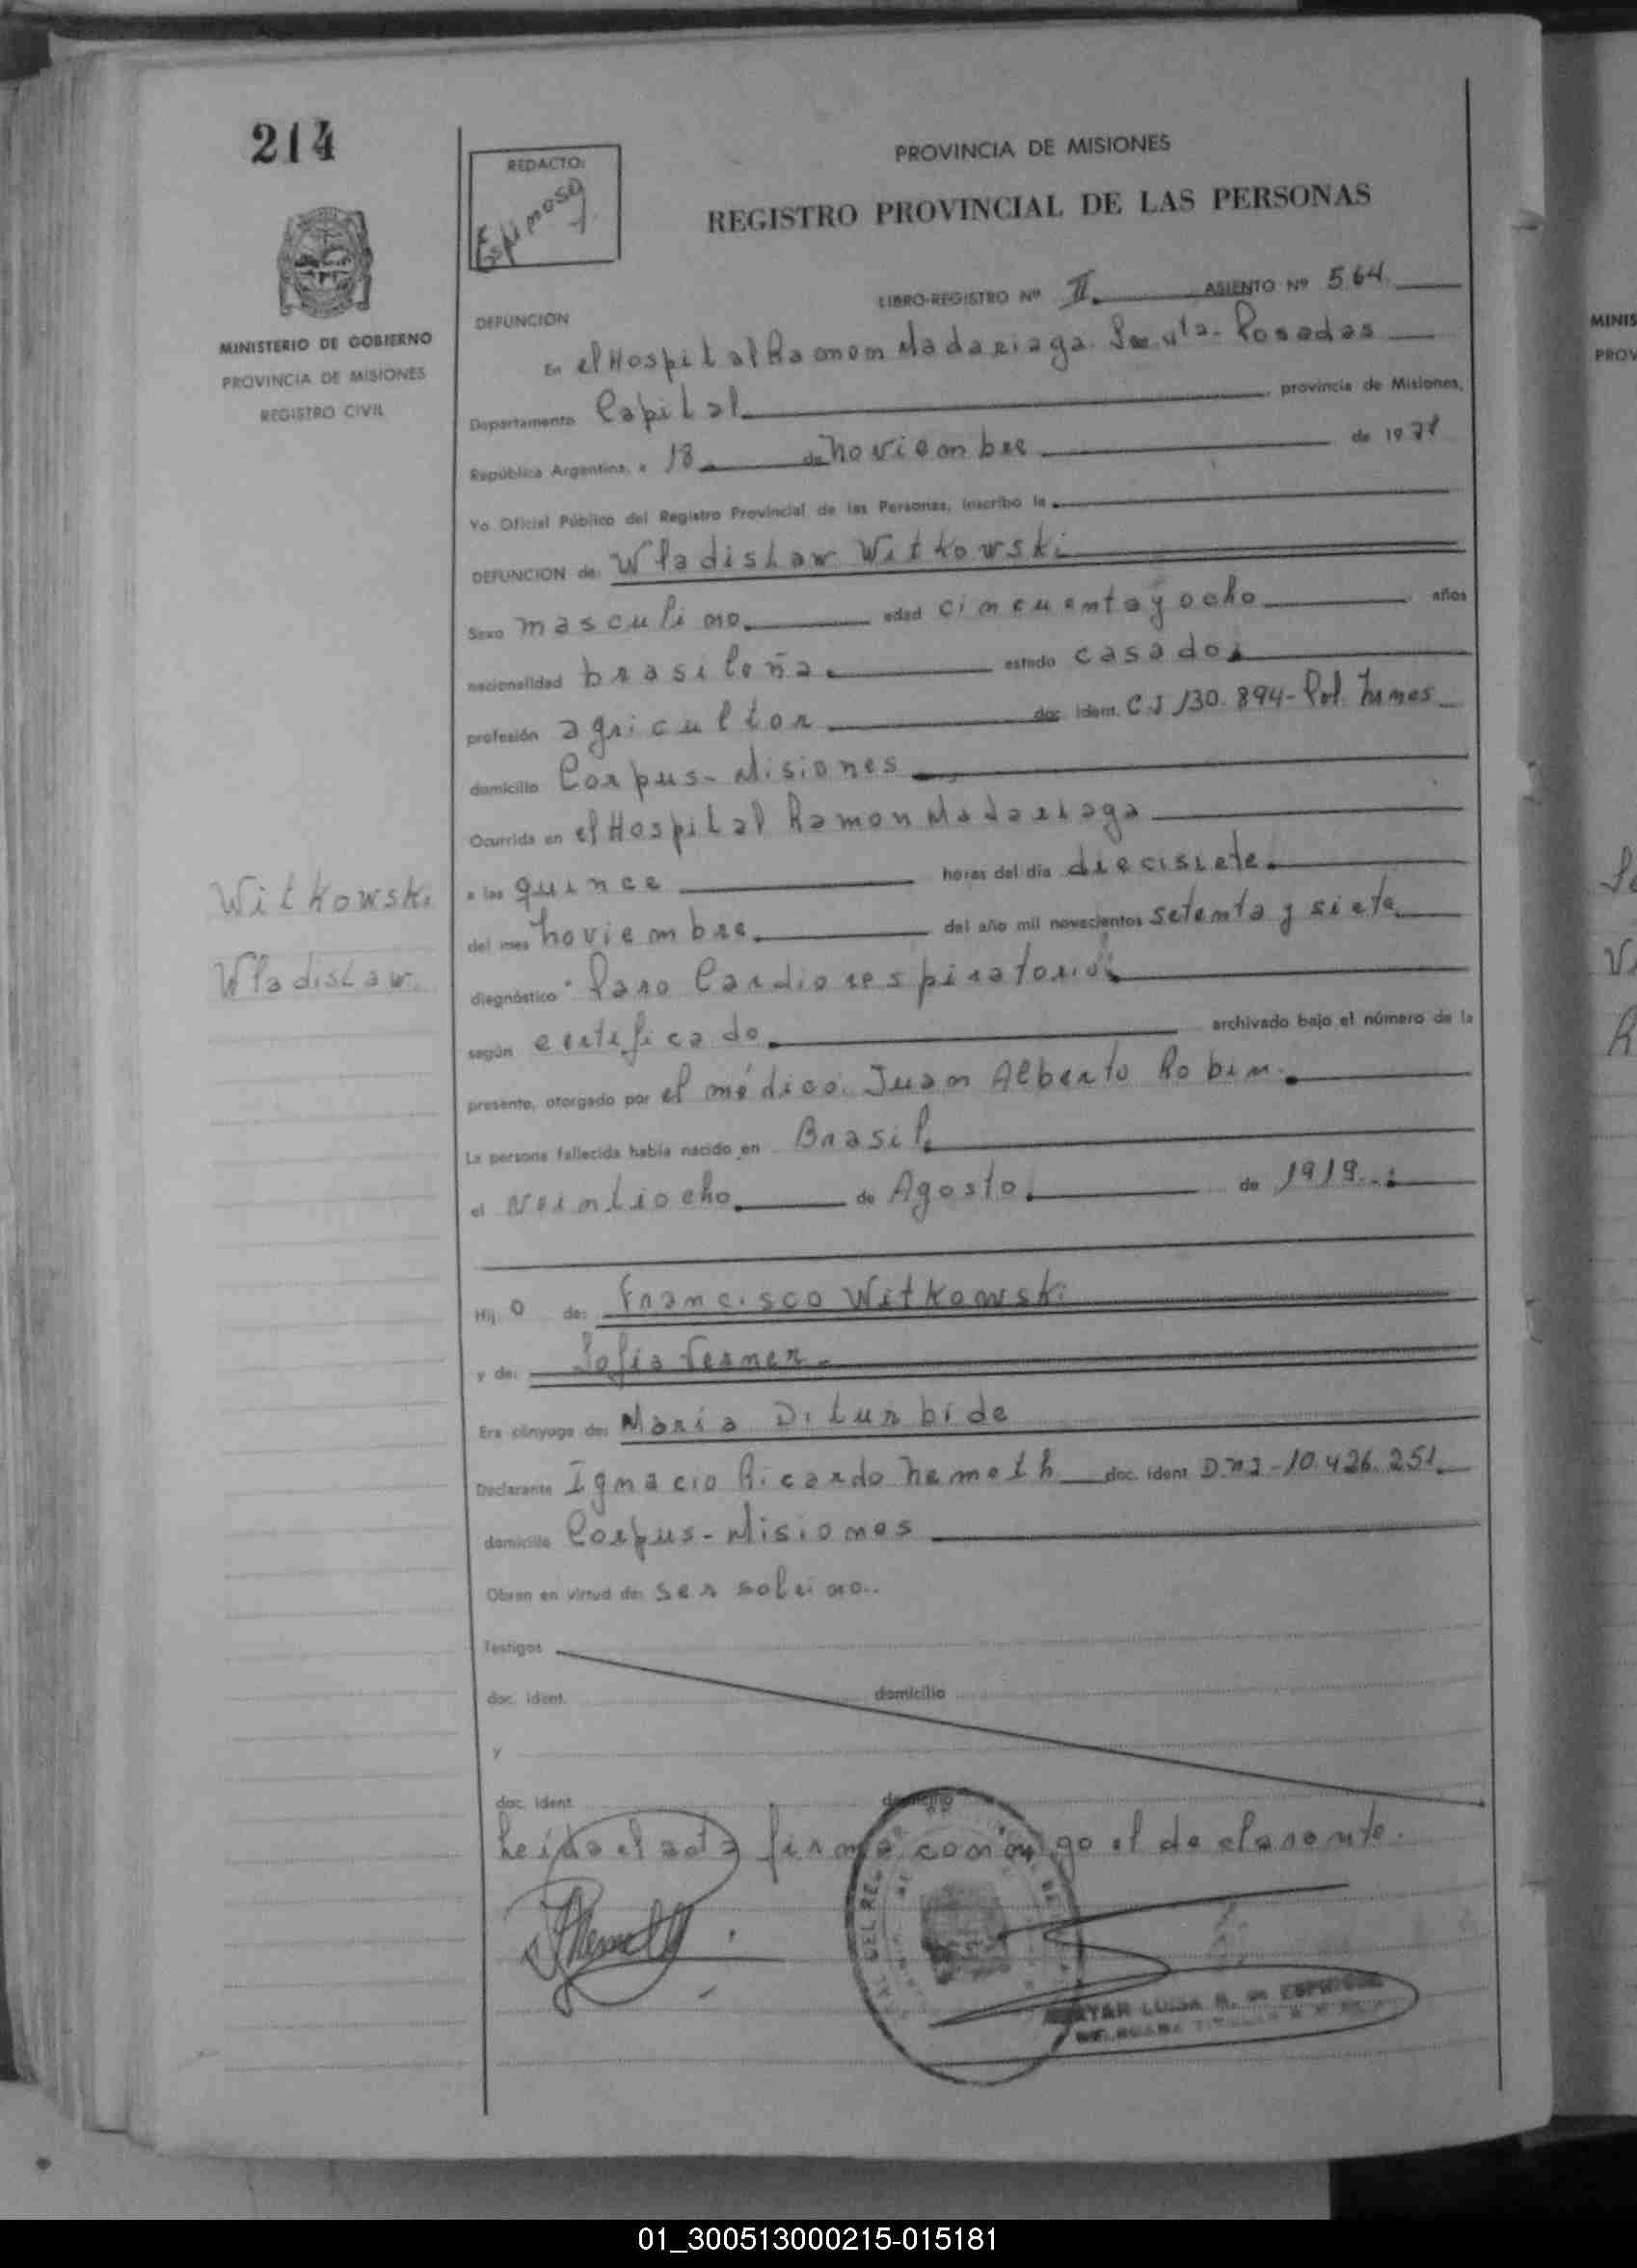 214
REDACTO:
Espinosa
PROVINCIA DE MISIONES
REGISTRO PROVINCIAL DE LAS PERSONAS
MINISTERIO DE GOBIERNO
PROVINCIA DE MISIONES
REGISTRO CIVIL
LIBRO-REGISTRO Nº II. ASIENTO Nº 564.
DEFUNCION
En el Hospital Ramon Madariaga. Posadas
Departamento Capital provincia de Misiones,
República Argentina, a 18 de noviembre de 1977
Yo Oficial Público del Registro Provincial de las Personas, inscribo la
DEFUNCION de: Wladislaw Witkowski
Sexo masculino. edad cincuenta y ocho años
nacionalidad brasileña. estado casado.
profesión agricultor doc. ident. C.I 130.894-Pol. Mnes
domicilio Corpus-Misiones
Ocurrida en el Hospital Ramon Madariaga
a las quince horas del día diecisiete.
Witkowski
del mes noviembre. del año mil novecientos setenta y siete
Wladislaw.
diagnóstico "Paro Cardiorespiratorio"
según certificado. archivado bajo el número de la
presente, otorgado por el médico. Juan Alberto Robin.
La persona fallecida había nacido en Brasil.
el veintiocho. de Agosto. de 1919..
Hij o de: Francisco Witkowski
y de: Sofia Verner.
Era cónyuge de: María D. Iturbide
Declarante Ignacio Ricardo Nemeth doc. ident. D.N.I-10.426.251.
domicilio Corpus-Misiones
Obran en virtud de: ser sobrino..
Testigos
doc. ident. domicilio
y
doc. ident. domicilio
Leída el acta firma conmigo el declarante.
01_300513000215-015181